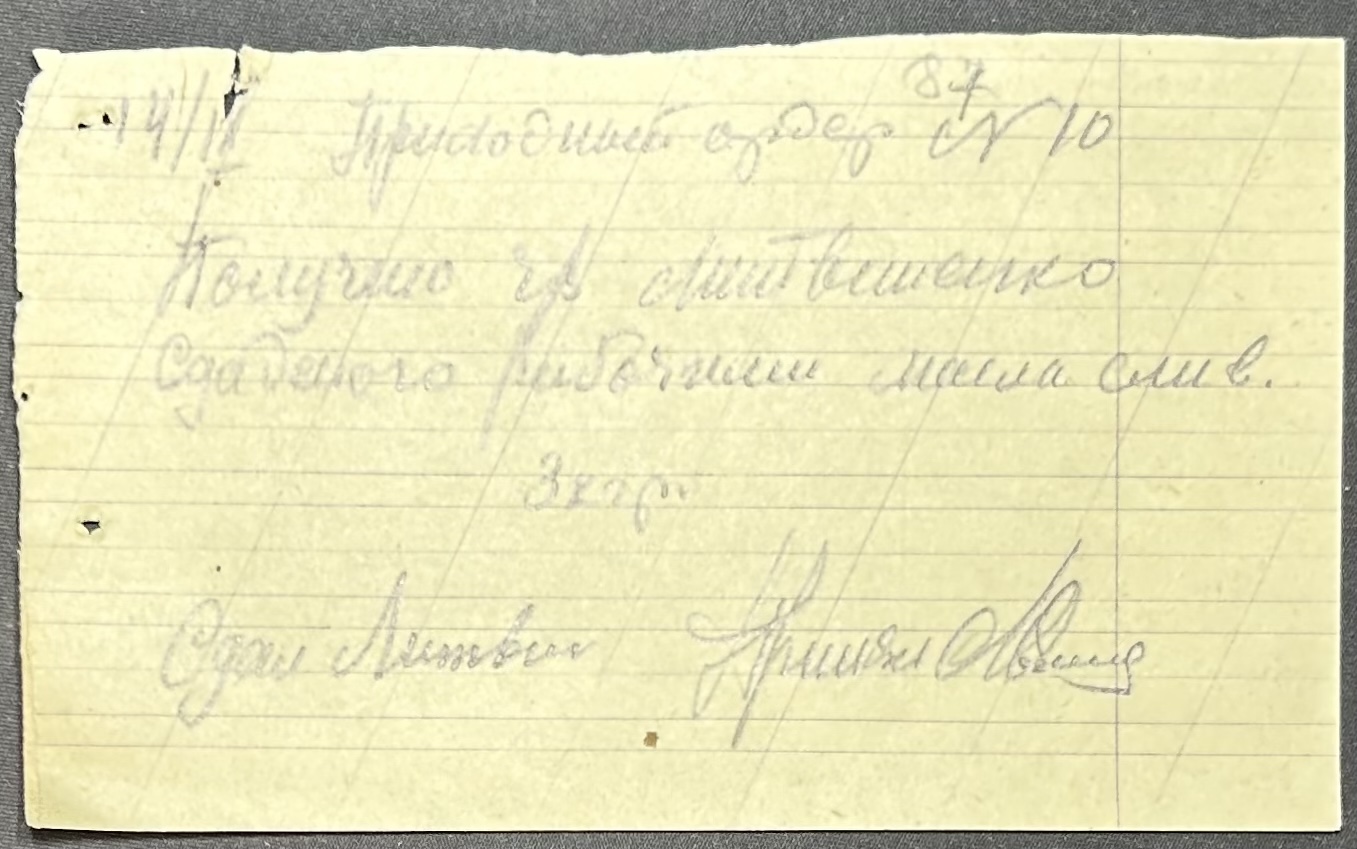 87
14/II Приходный ордер N 10
Получено чр Литвиненко
Сдаденого рабочими масла слив.
3 кгр.
Сдал Литвин Принял